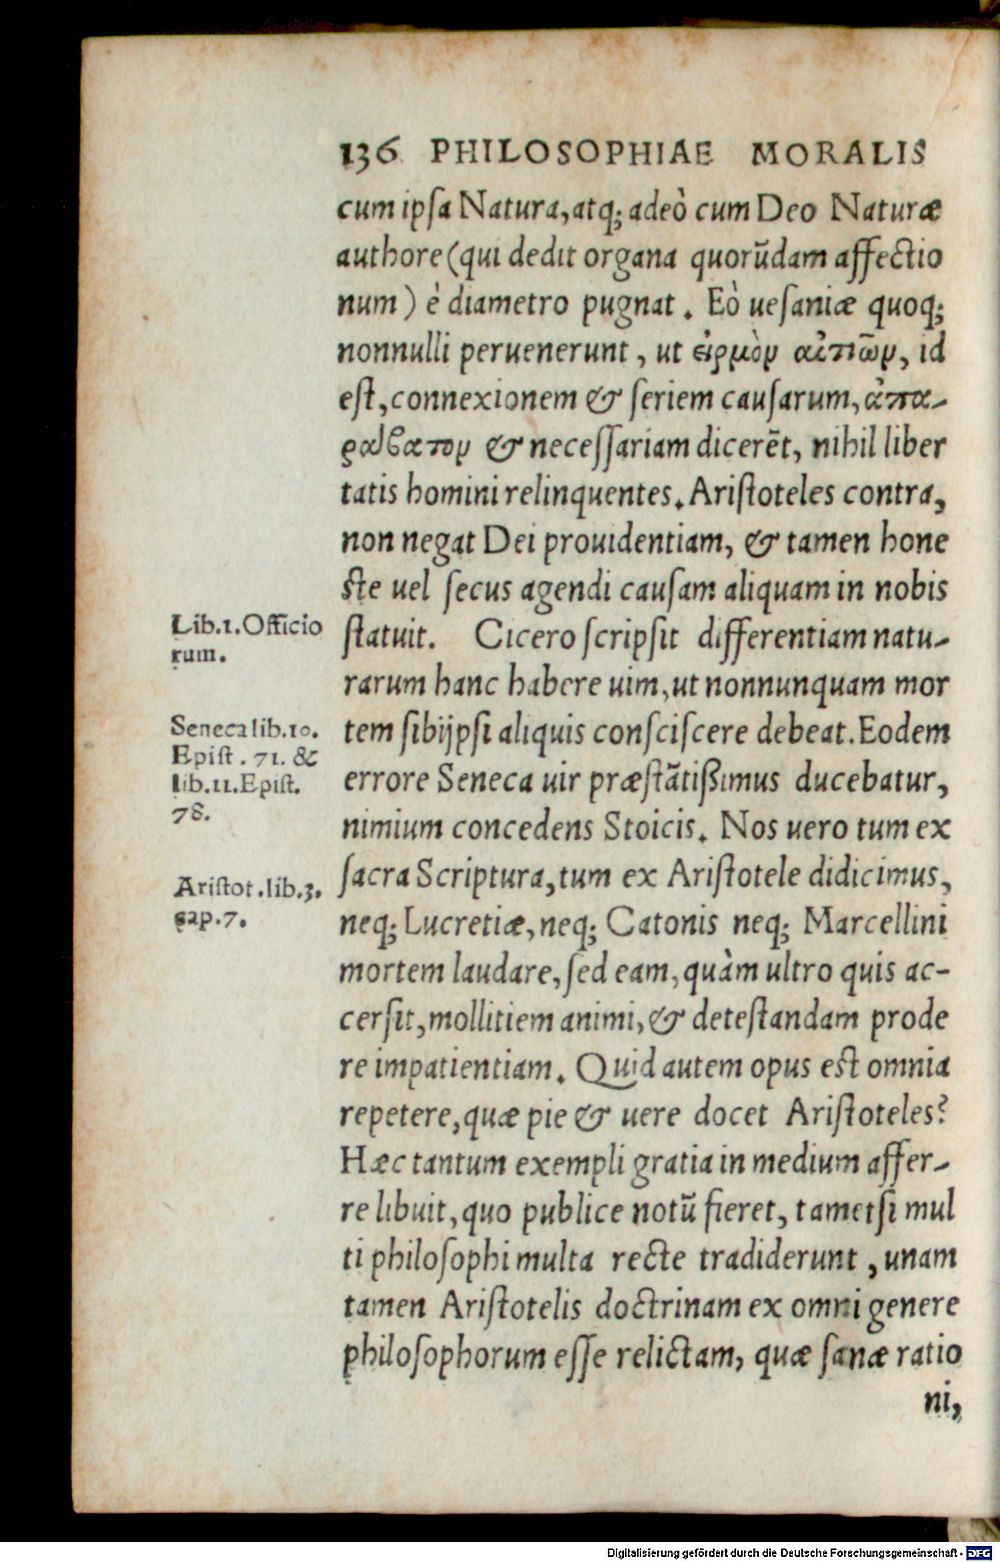 136 PHILOSOPHIAE MORALIS
cum ipsa Natura, atq; adeò cum Deo Naturæ
authore (qui dedit organa quorūdam affectio
num) è diametro pugnat. Eò uesaniæ quoq;
nonnulli peruenerunt, ut εἱρμὸν αἰτιῶν, id
est, connexionem & seriem causarum, ἀπα-
ράβατον & necessariam dicerēt, nihil liber
tatis homini relinquentes. Aristoteles contra,
non negat Dei prouidentiam, & tamen hone
ste uel secus agendi causam aliquam in nobis
Lib.1.Officio
rum.
statuit. Cicero scripsit differentiam natu-
rarum hanc habere uim, ut nonnunquam mor
Seneca lib.10.
Epist. 71. &
lib.11.Epist.
78.
tem sibijpsi aliquis consciscere debeat. Eodem
errore Seneca uir præstātißimus ducebatur,
nimium concedens Stoicis. Nos uero tum ex
Aristot.lib.3.
cap.7.
sacra Scriptura, tum ex Aristotele didicimus,
neq; Lucretiæ, neq; Catonis neq; Marcellini
mortem laudare, sed eam, quàm ultro quis ac-
cersit, mollitiem animi, & detestandam prode
re impatientiam. Quid autem opus est omnia
repetere, quæ pie & uere docet Aristoteles?
Hæc tantum exempli gratia in medium affer-
re libuit, quo publice notū fieret, tametsi mul
ti philosophi multa recte tradiderunt, unam
tamen Aristotelis doctrinam ex omni genere
philosophorum esse relictam, quæ sanæ ratio
ni,
Digitalisierung gefördert durch die Deutsche Forschungsgemeinschaft - DFG